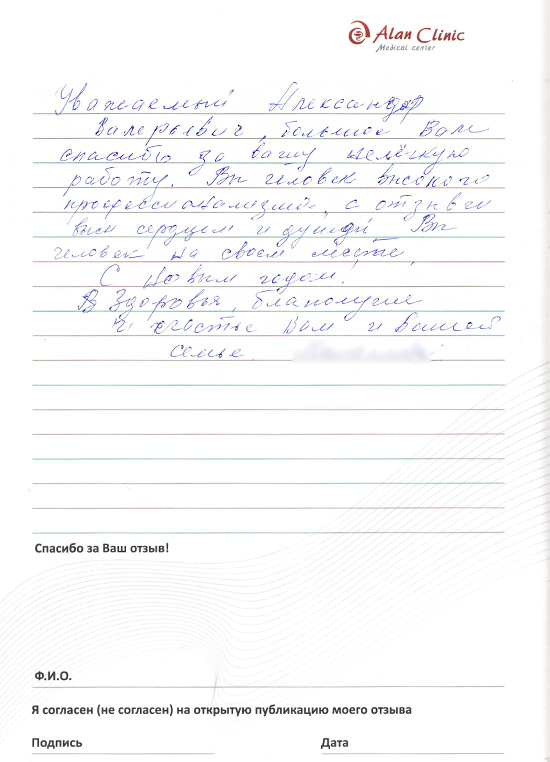 Alan Clinic
Medical center
Уважаемый Александр
Валерьевич, большое Вам
спасибо за вашу нелёгкую
работу. Вы человек высокого
профессионализма, с отзывчи
вым сердцем и душой. Вы
человек на своем месте.
С новым годом!
Здоровья, благополучия
и счастье Вам и Вашей
семье
Спасибо за Ваш отзыв!
Ф.И.О.
Я согласен (не согласен) на открытую публикацию моего отзыва
Подпись Дата